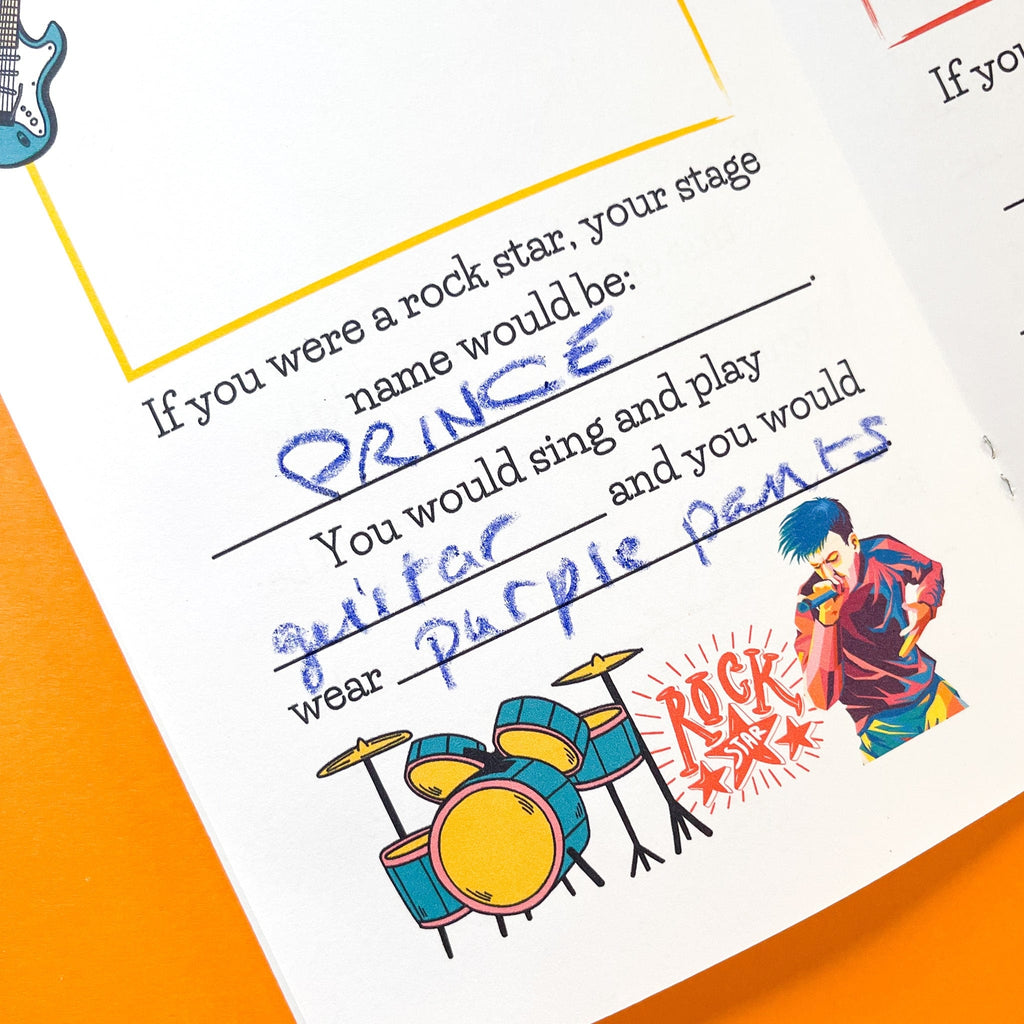 If you were a rock star, your stage
name would be:
PRINCE.
You would sing and play
guitar and you would
wear purple pants.
ROCK
STAR
If you